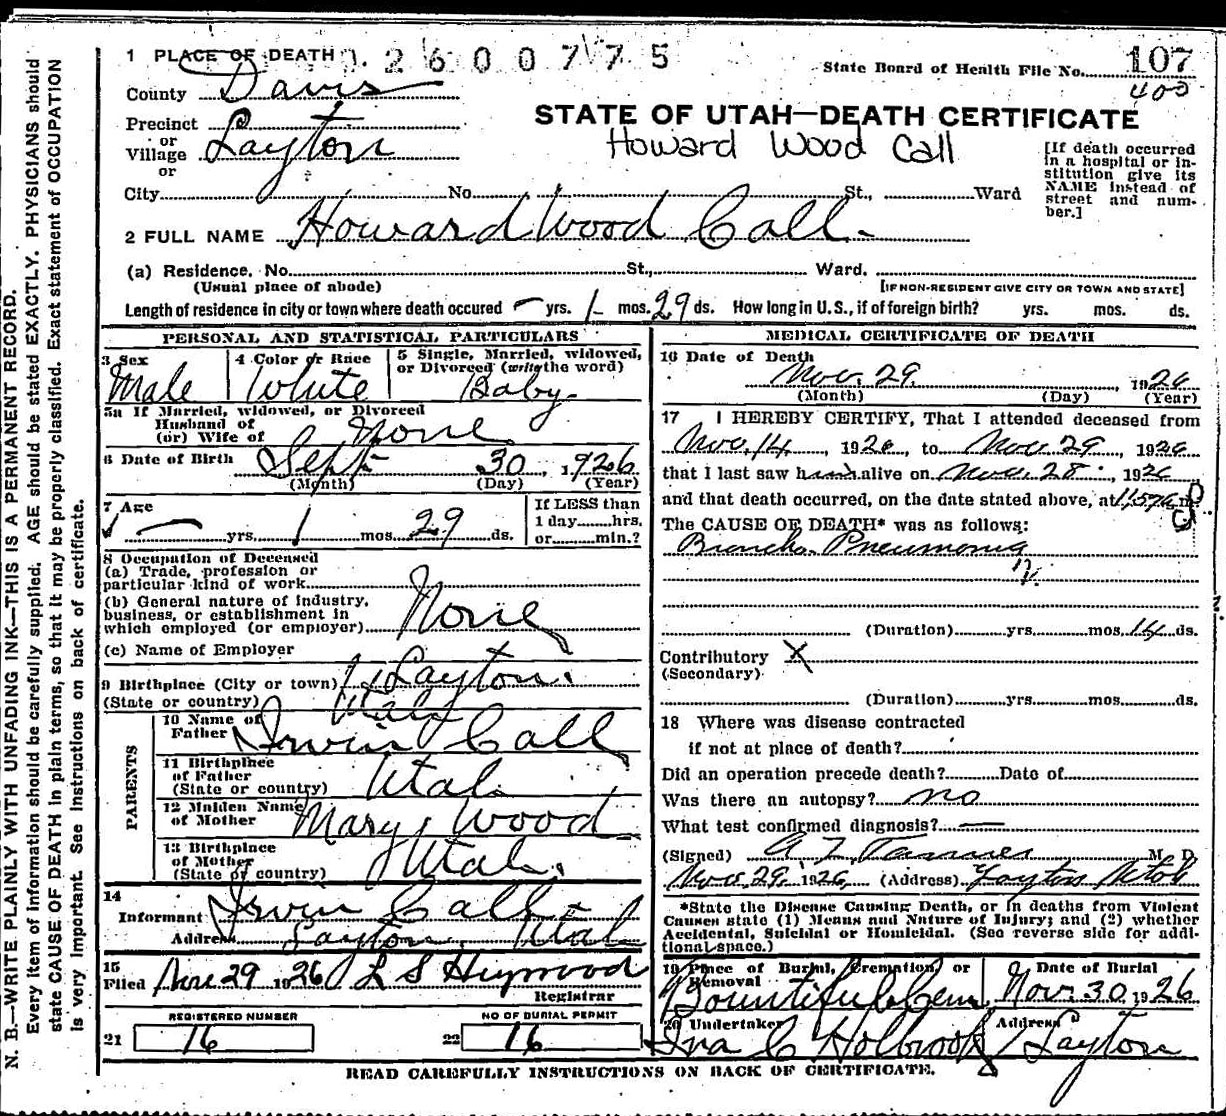 1 PLACE OF DEATH 2600775
State Board of Health File No. 107
400
County Davis
STATE OF UTAH—DEATH CERTIFICATE
Precinct
or
Village Layton
or
Howard Wood Call
[If death occurred in a hospital or institution give its NAME instead of street and number.]
City No. St., Ward
2 FULL NAME Howard Wood Call
(a) Residence, No. St., Ward.
(Usual place of abode) [IF NON-RESIDENT GIVE CITY OR TOWN AND STATE]
Length of residence in city or town where death occured – yrs. 1 mos. 29 ds. How long in U.S., if of foreign birth? yrs. mos. ds.
PERSONAL AND STATISTICAL PARTICULARS
3 Sex Male
4 Color or Race White
5 Single, Married, widowed, or Divorced (write the word) Baby
5a If Married, widowed, or Divorced
Husband of
(or) Wife of None
6 Date of Birth Sept 30, 1926
(Month) (Day) (Year)
7 Age
— yrs. 1 mos. 29 ds.
If LESS than
1 day hrs.
or min.?
8 Occupation of Deceased
(a) Trade, profession or
particular kind of work
(b) General nature of industry,
business, or establishment in
which employed (or employer) None
(c) Name of Employer
9 Birthplace (City or town) Layton.
(State or country) Utah
PARENTS
10 Name of Father Irwin Call
11 Birthplace of Father (State or country) Utah
12 Maiden Name of Mother Mary Wood
13 Birthplace of Mother (State or country) Utah.
14
Informant Irwin Call
Address Layton, Utah
15
Filed Nov 29 1926 L S Heywood
Registrar
REGISTERED NUMBER
21 16
NO OF BURIAL PERMIT
22 16
MEDICAL CERTIFICATE OF DEATH
16 Date of Death
Nov. 29, 1926
(Month) (Day) (Year)
17 I HEREBY CERTIFY, That I attended deceased from
Nov. 14, 1926, to Nov. 29, 1926
that I last saw him alive on Nov. 28, 1926
and that death occurred, on the date stated above, at m
The CAUSE OF DEATH* was as follows:
Broncho Pneumonia
(Duration) yrs. mos. 14 ds.
Contributory X
(Secondary)
(Duration) yrs. mos. ds.
18 Where was disease contracted
if not at place of death?
Did an operation precede death? Date of
Was there an autopsy? no
What test confirmed diagnosis? —
(Signed) Tanner M. D.
Nov. 29, 1926, (Address) Layton Utah
*State the Disease Causing Death, or in deaths from Violent
Causes state (1) Means and Nature of Injury; and (2) whether
Accidental, Suicidal or Homicidal. (See reverse side for addi-
tional space.)
19 Place of Burial, Cremation, or Removal
Bountiful Cem.
Date of Burial
Nov. 30, 1926
20 Undertaker
Ira C Holbrook
Address
Layton
READ CAREFULLY INSTRUCTIONS ON BACK OF CERTIFICATE.
N. B.—WRITE PLAINLY WITH UNFADING INK—THIS IS A PERMANENT RECORD.
Every item of information should be carefully supplied. AGE should be stated EXACTLY. PHYSICIANS should
state CAUSE OF DEATH in plain terms, so that it may be properly classified. Exact statement of OCCUPATION
is very important. See instructions on back of certificate.